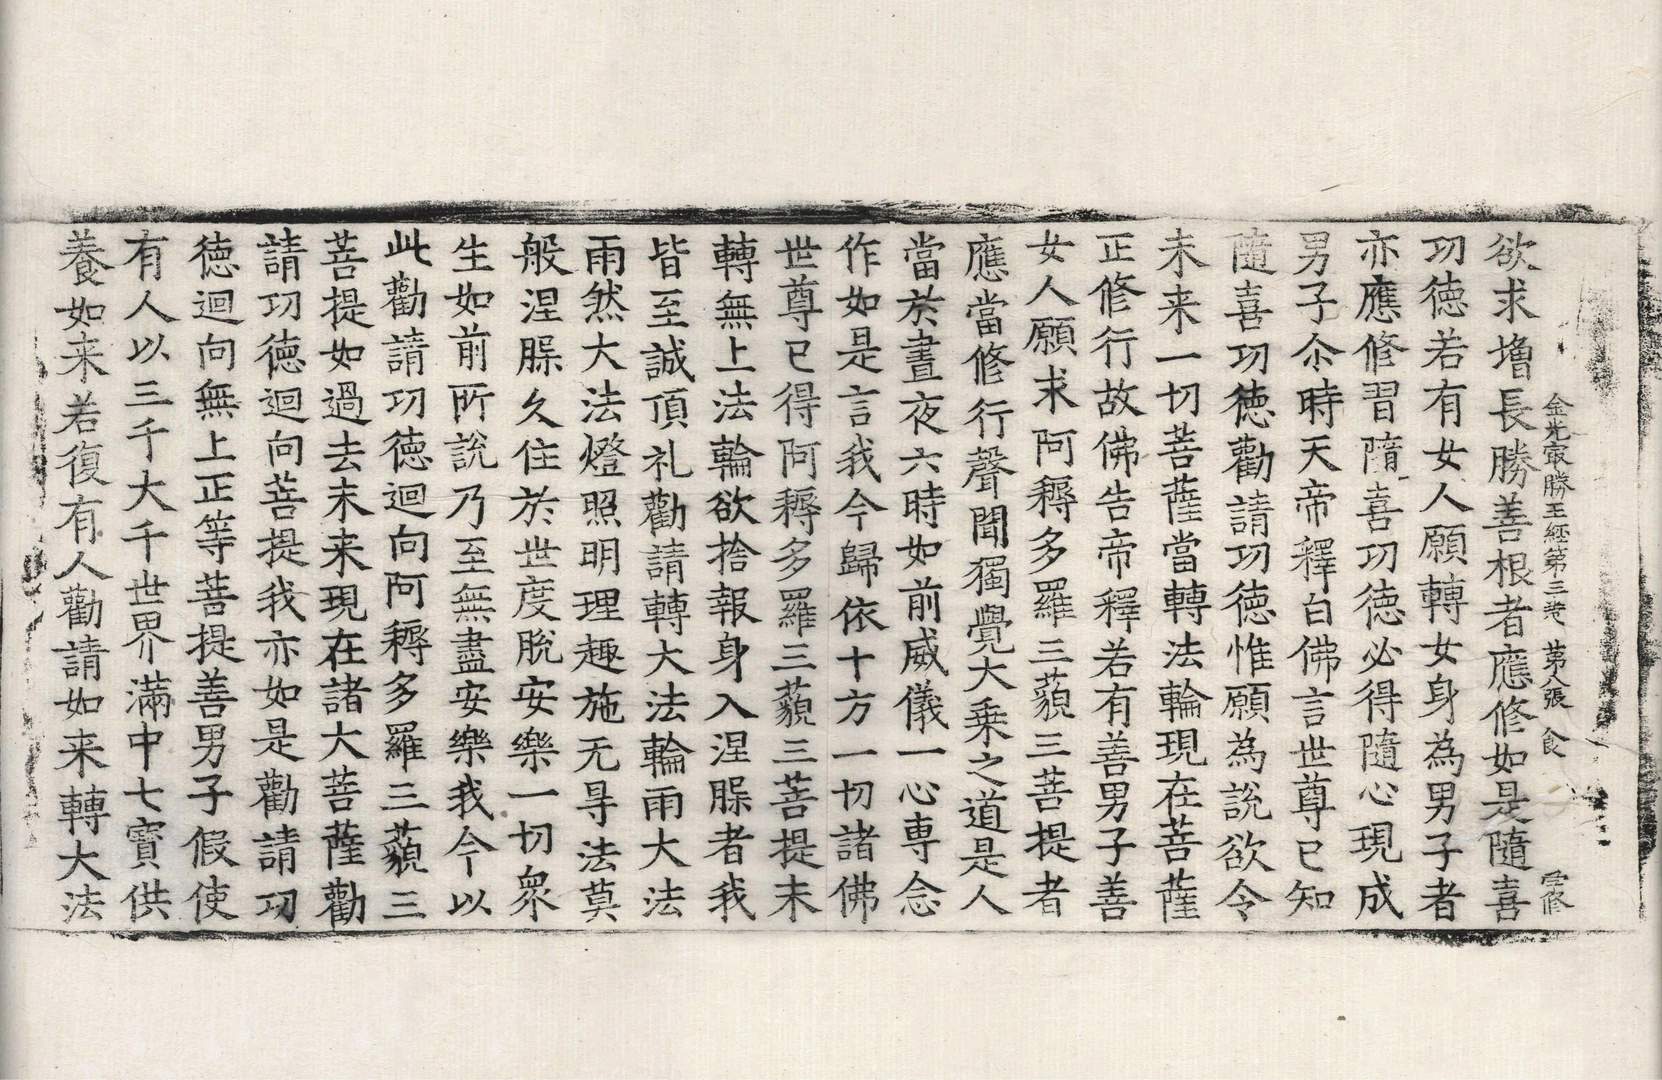 金光㝡勝王經第三卷 苐八張 食
欲求増長勝善根者應修如是隨喜
功徳若有女人願轉女身為男子者
亦應修習隨喜功徳必得隨心現成
男子尒時天帝釋白佛言世尊已知
隨喜功徳勸請功徳惟願為說欲令
未来一切菩薩當轉法輪現在菩薩
正修行故佛告帝釋若有善男子善
女人願求阿耨多羅三藐三菩提者
應當修行聲聞獨覺大乗之道是人
當於晝夜六時如前威儀一心専念
作如是言我今歸依十方一切諸佛
世尊已得阿耨多羅三藐三菩提未
轉無上法輪欲捨報身入涅槃者我
皆至誠頂礼勸請轉大法輪雨大法
雨然大法燈照明理趣施无㝵法莫
般涅槃久住於世度脫安樂一切衆
生如前所說乃至無盡安樂我今以
此勸請功徳迴向阿耨多羅三藐三
菩提如過去未来現在諸大菩薩勸
請功徳迴向菩提我亦如是勸請功
徳迴向無上正等菩提善男子假使
有人以三千大千世界滿中七寶供
養如来若復有人勸請如来轉大法